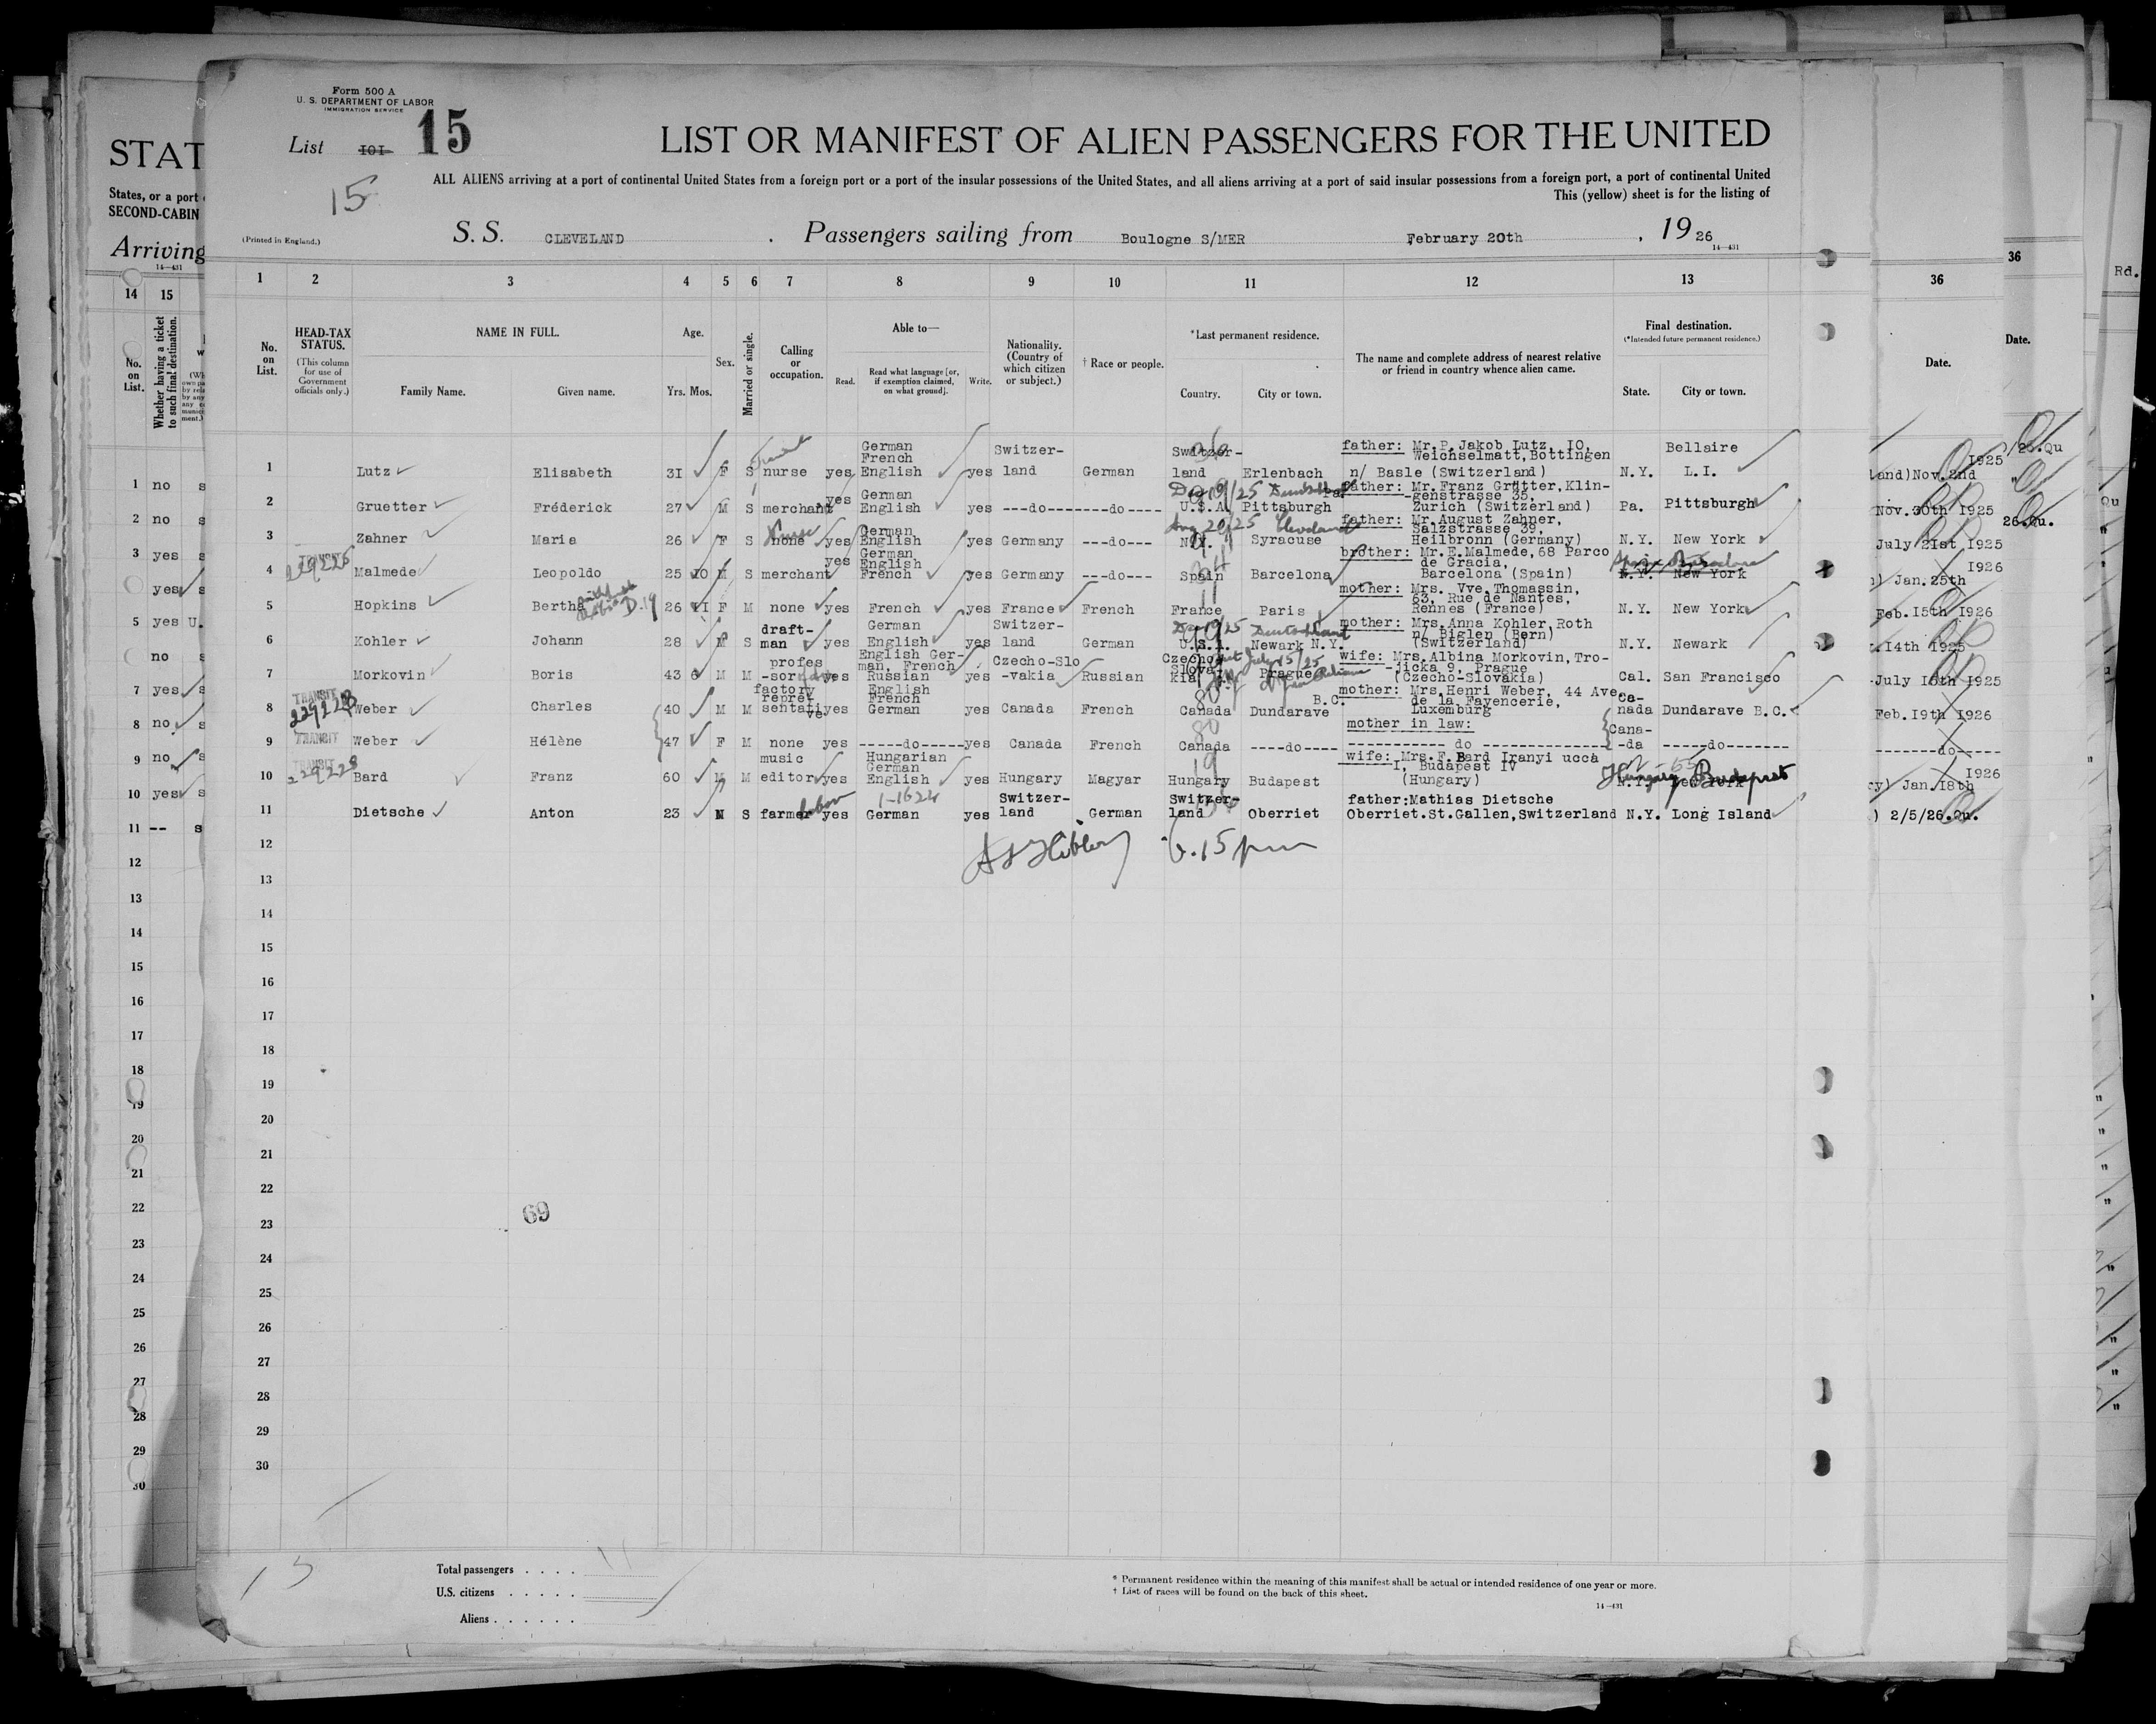 Form 500 A
U. S. DEPARTMENT OF LABOR
IMMIGRATION SERVICE
List IOI 15
15
LIST OR MANIFEST OF ALIEN PASSENGERS FOR THE UNITED
ALL ALIENS arriving at a port of continental United States from a foreign port or a port of the insular possessions of the United States, and all aliens arriving at a port of said insular possessions from a foreign port, a port of continental United
This (yellow) sheet is for the listing of
(Printed in England.)
S. S. CLEVELAND . Passengers sailing from Boulogne S/MER February 20th , 1926
14—431
STAT
States, or a port
SECOND-CABIN
Arriving
14—431
1 2 3 4 5 6 7 8 9 10 11 12 13
No. on List.
HEAD-TAX STATUS.
(This column for use of Government officials only.)
NAME IN FULL.
Family Name. Given name.
Age.
Yrs. Mos.
Sex.
Married or single.
Calling or occupation.
Able to—
Read. Read what language [or, if exemption claimed, on what ground]. Write.
Nationality. (Country of which citizen or subject.)
† Race or people.
*Last permanent residence.
Country. City or town.
The name and complete address of nearest relative or friend in country whence alien came.
Final destination.
(*Intended future permanent residence.)
State. City or town.
14 15
No. on List.
Whether having a ticket to such final destination.
36 36
Date. Date.
Rd.
1 Lutz Elisabeth 31 F S nurse yes German French English yes Switzer-land German Switzer-land Erlenbach father: Mr. P. Jakob Lutz, IO, Weichselmatt, Bottingen n/ Basle (Switzerland) N.Y. Bellaire L.I.
2 Gruetter Fréderick 27 M S merchant yes German English yes ---do--- ----do---- U.S.A. Pittsburgh Pa. father: Mr. Franz Grütter, Klin-genstrasse 35, Zurich (Switzerland) Pa. Pittsburgh
3 Zahner Maria 26 F S none Nurse yes German English yes Germany ---do--- N.Y. Syracuse father: Mr. August Zahner, Salzstrasse 39, Heilbronn (Germany) N.Y. New York
4 TRANSIT 229226 Malmede Leopoldo 25 10 M S merchant yes German English French yes Germany ---do--- Spain Barcelona brother: Mr. E. Malmede, 68 Parco de Gracia, Barcelona (Spain) N.Y. New York
5 Hopkins Bertha 26 II F M none yes French yes France French France Paris mother: Mrs. Vve. Thomassin, 63, Rue de Nantes, Rennes (France) N.Y. New York
6 Kohler Johann 28 M S draft-man yes German English yes Switzer-land German U.S.A. Newark N.Y. mother: Mrs. Anna Kohler, Roth n/ Biglen (Bern) (Switzerland) N.Y. Newark
7 Morkovin Boris 43 6 M M profes-sor yes English Ger-man, French Russian yes Czecho-Slo-vakia Russian Czecho-Slovakia Prague wife: Mrs. Albina Morkovin, Tro-jicka 9, Prague (Czecho-Slovakia) Cal. San Francisco
8 TRANSIT 229228 Weber Charles 40 M M factory repre-sentative yes English French German yes Canada French Canada Dundarave B.C. mother: Mrs. Henri Weber, 44 Ave. de la Fayencerie, Luxemburg Ca-nada Dundarave B.C.
9 TRANSIT Weber Hélène 47 F M none yes -----do----- yes Canada French Canada ----do---- mother in law: ------------ do ------------ Cana-da -----do-------
10 TRANSIT 229228 Bard Franz 60 M M music editor yes Hungarian German English yes Hungary Magyar Hungary Budapest wife: Mrs. F. Bard Iranyi ucca I, Budapest IV (Hungary) N.Y. New York Hungary Budapest
11 Dietsche Anton 23 M S farmer labor yes German 1-1624 yes Switzer-land German Switzer-land Oberriet father: Mathias Dietsche Oberriet. St. Gallen, Switzerland N.Y. Long Island
6.15 pm
12
13
14
15
16
17
18
19
20
21
22
23
24
25
26
27
28
29
30
69
1 no
2 no
3 yes
yes
5 yes U.
no
7 yes
8 no
9 no
10 yes
11 --
land) Nov. 2nd 1925
Nov. 30th 1925
July 21st 1925
Jan. 25th 1926
Feb. 15th 1926
14th 1925
July 15th 1925
Feb. 19th 1926
-------do-----
Jan. 18th 1926
) 2/5/26. Qu.
/26. Qu
26. Qu.
15
Total passengers . . . . 11
U.S. citizens . . . . .
Aliens . . . . . .
* Permanent residence within the meaning of this manifest shall be actual or intended residence of one year or more.
† List of races will be found on the back of this sheet.
14—431